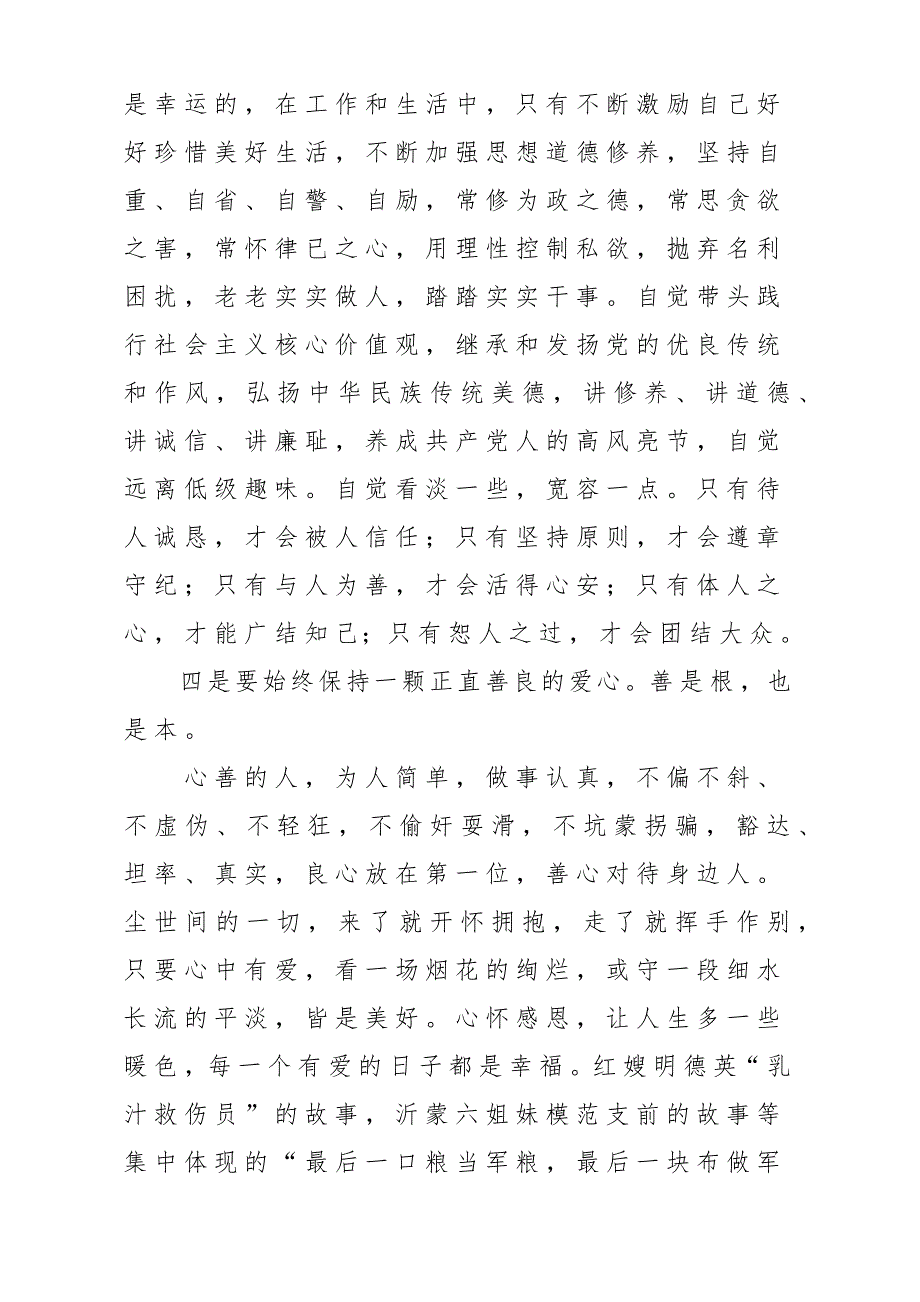 是幸运的，在工作和生活中，只有不断激励自己好
好珍惜美好生活，不断加强思想道德修养，坚持自
重、自省、自警、自励，常修为政之德，常思贪欲
之害，常怀律已之心，用理性控制私欲，抛弃名利
困扰，老老实实做人，踏踏实实干事。自觉带头践
行社会主义核心价值观，继承和发扬党的优良传统
和作风，弘扬中华民族传统美德，讲修养、讲道德、
讲诚信、讲廉耻，养成共产党人的高风亮节，自觉
远离低级趣味。自觉看淡一些，宽容一点。只有待
人诚恳，才会被人信任；只有坚持原则，才会遵章
守纪；只有与人为善，才会活得心安；只有体人之
心，才能广结知己；只有恕人之过，才会团结大众。
四是要始终保持一颗正直善良的爱心。善是根，也
是本。
心善的人，为人简单，做事认真，不偏不斜、
不虚伪、不轻狂，不偷奸耍滑，不坑蒙拐骗，豁达、
坦率、真实，良心放在第一位，善心对待身边人。
尘世间的一切，来了就开怀拥抱，走了就挥手作别，
只要心中有爱，看一场烟花的绚烂，或守一段细水
长流的平淡，皆是美好。心怀感恩，让人生多一些
暖色，每一个有爱的日子都是幸福。红嫂明德英“乳
汁救伤员”的故事，沂蒙六姐妹模范支前的故事等
集中体现的“最后一口粮当军粮，最后一块布做军